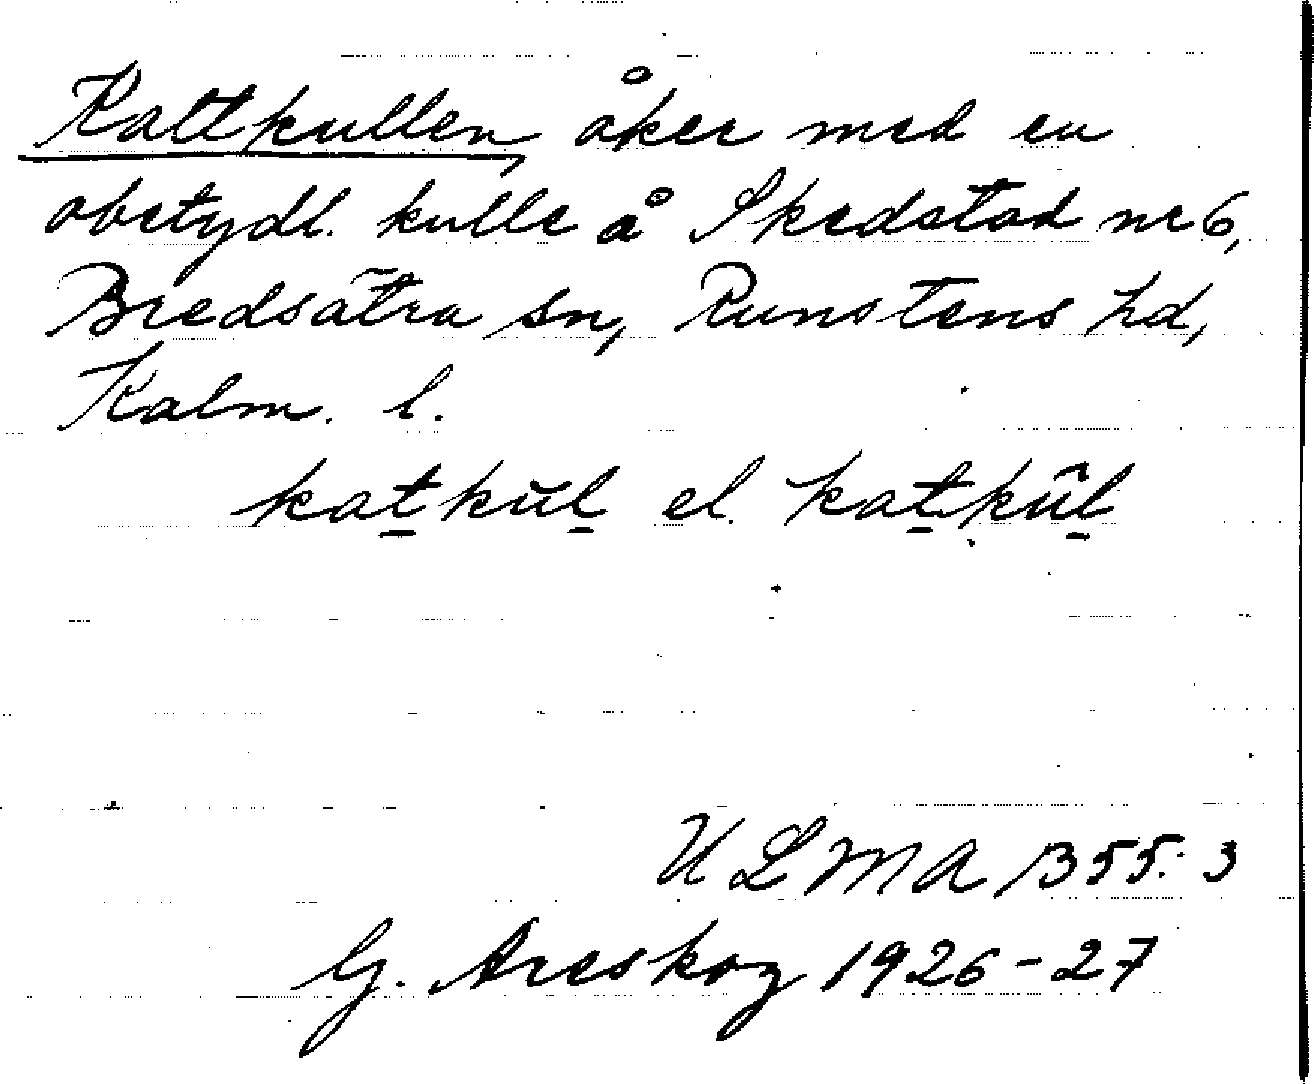 Kattkullen, åker med en
obetydl. kulle å Skedstad nr 6,
Bredsätra sn, Runstens hd,
Kalm. l.
kat̲kŭl̲ el. kat̲kûl̲
ULMA B 55:3
G. Areskog 1926-27